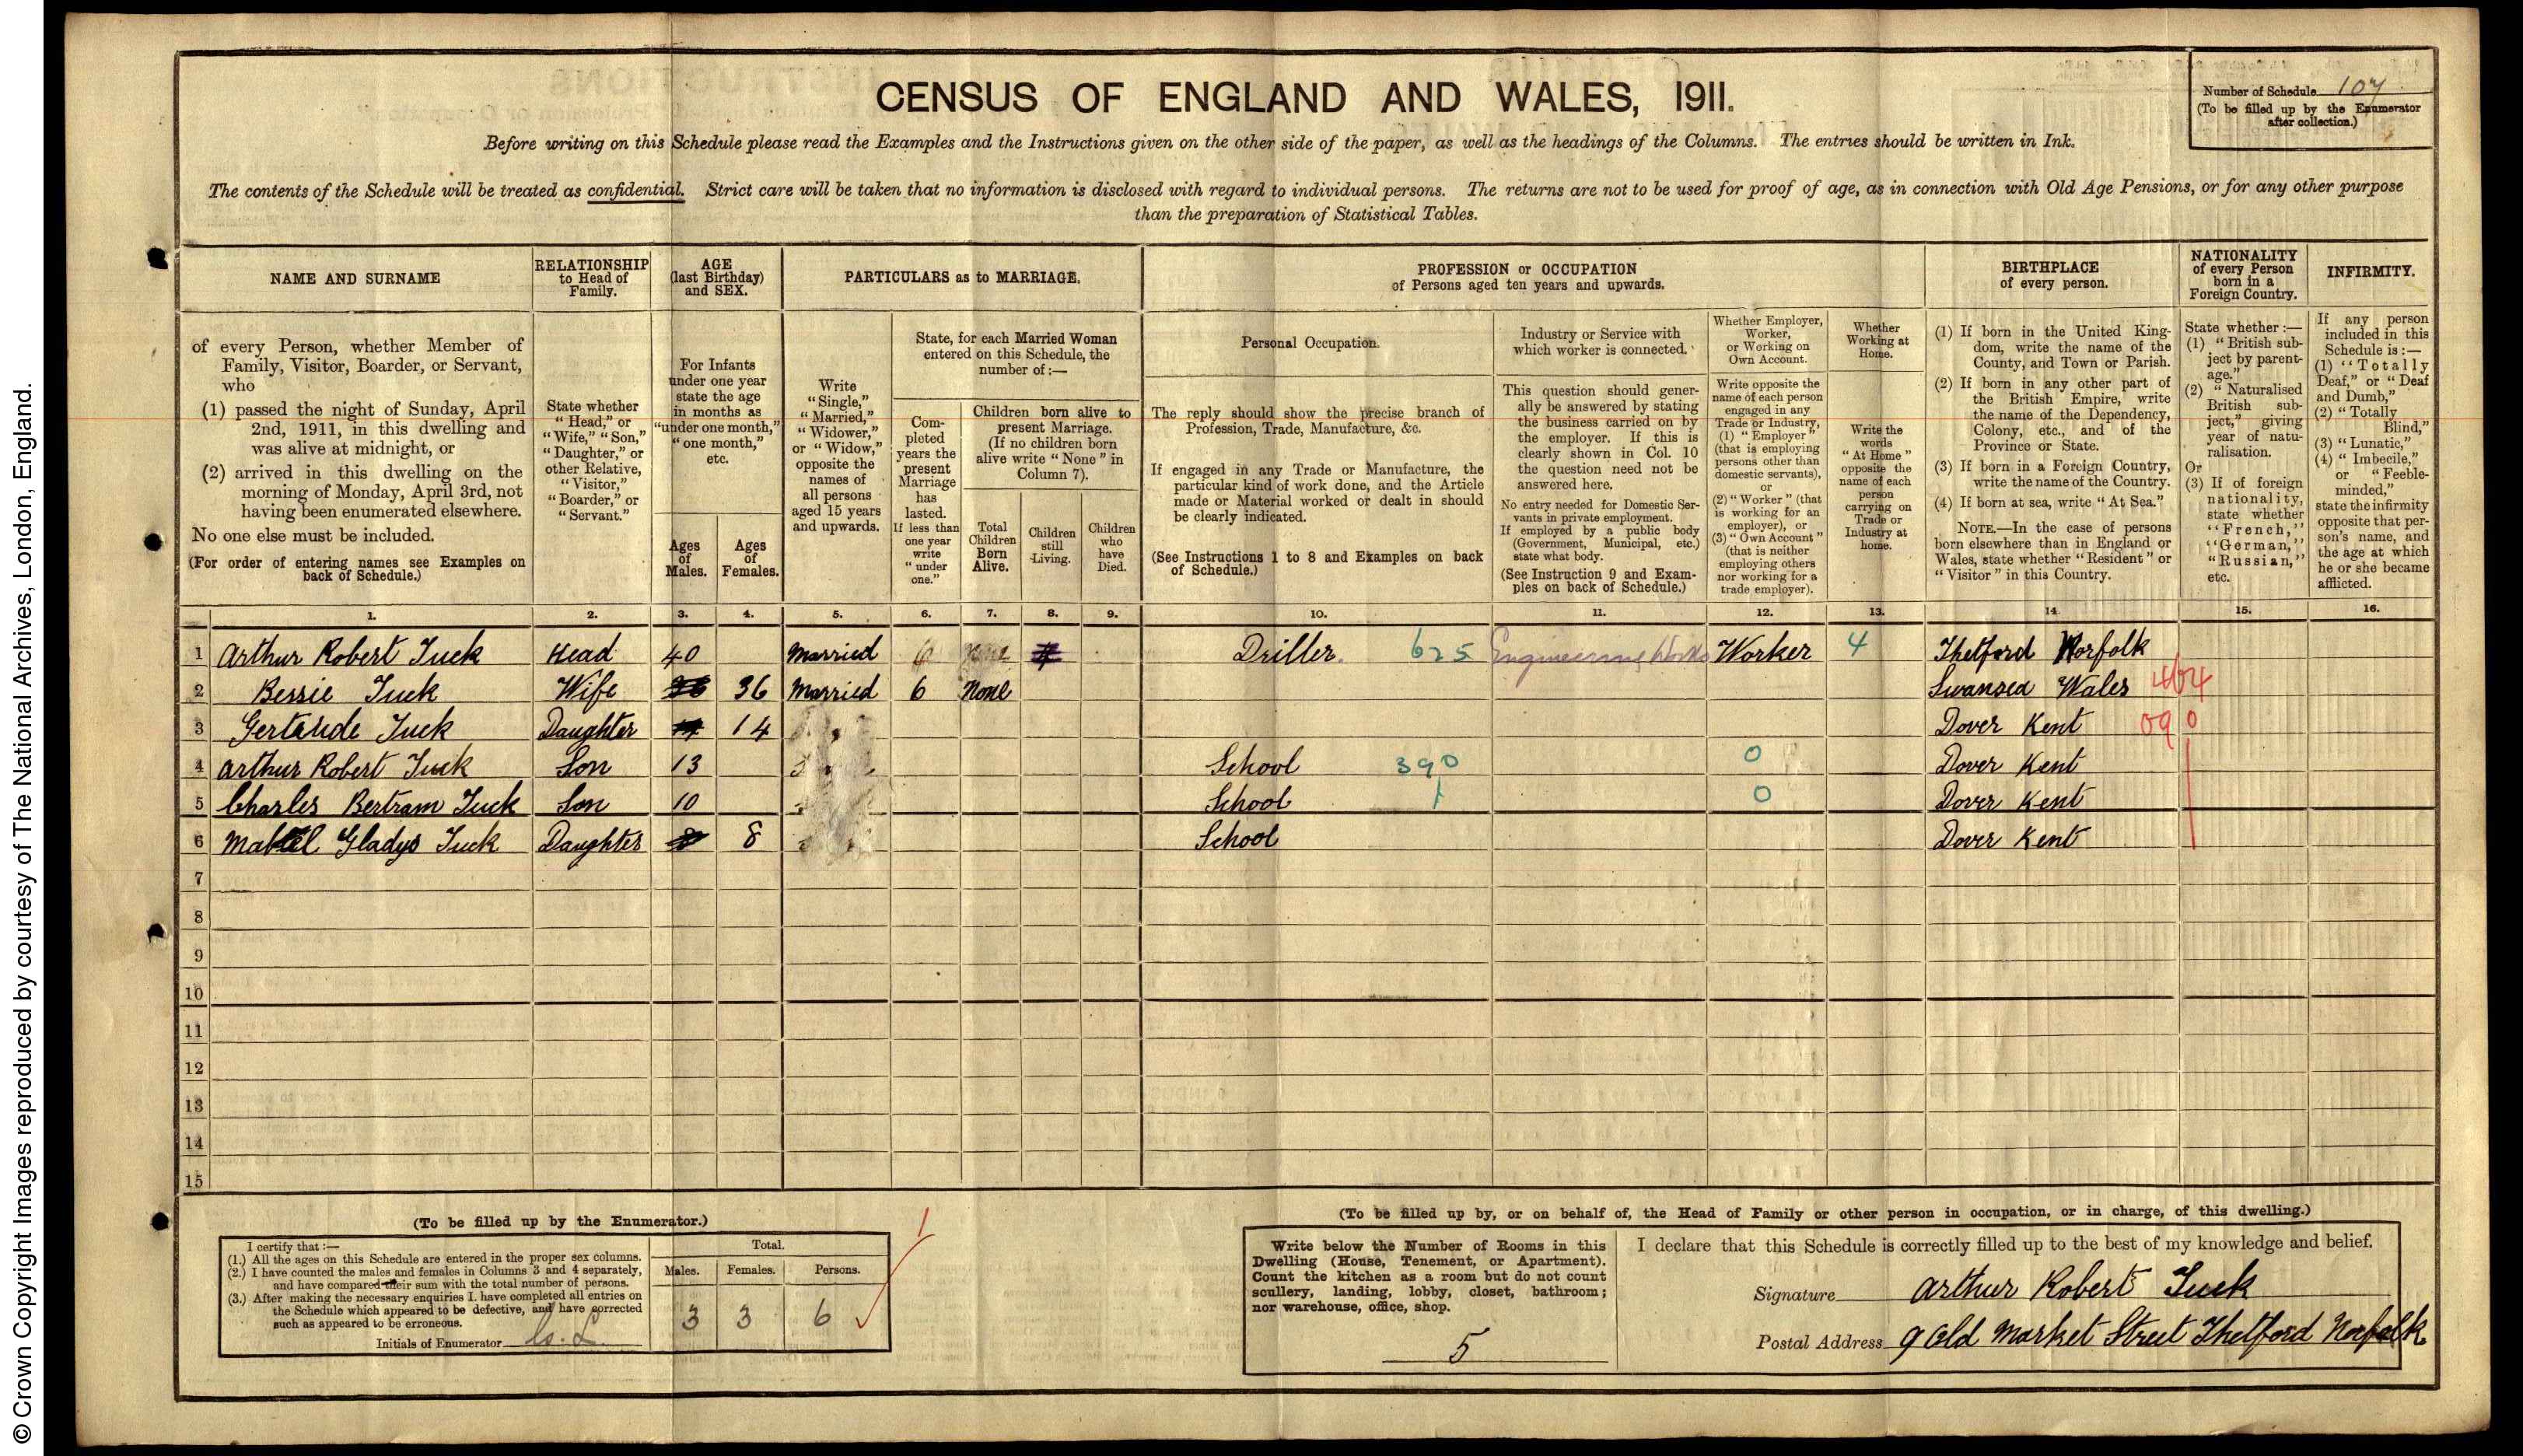 © Crown Copyright Images reproduced by courtesy of The National Archives, London, England.
CENSUS OF ENGLAND AND WALES, 1911.
Number of Schedule 107
(To be filled up by the Enumerator after collection.)
Before writing on this Schedule please read the Examples and the Instructions given on the other side of the paper, as well as the headings of the Columns. The entries should be written in Ink.
The contents of the Schedule will be treated as confidential. Strict care will be taken that no information is disclosed with regard to individual persons. The returns are not to be used for proof of age, as in connection with Old Age Pensions, or for any other purpose
than the preparation of Statistical Tables.
NAME AND SURNAME
of every Person, whether Member of
Family, Visitor, Boarder, or Servant,
who
(1) passed the night of Sunday, April
2nd, 1911, in this dwelling and
was alive at midnight, or
(2) arrived in this dwelling on the
morning of Monday, April 3rd, not
having been enumerated elsewhere.
No one else must be included.
(For order of entering names see Examples on
back of Schedule.)
RELATIONSHIP
to Head of
Family.
State whether
"Head," or
"Wife," "Son,"
"Daughter," or
other Relative,
"Visitor,"
"Boarder," or
"Servant."
AGE
(last Birthday)
and SEX.
For Infants
under one year
state the age
in months as
"under one month,"
"one month,"
etc.
Ages
of
Males.
Ages
of
Females.
PARTICULARS as to MARRIAGE.
Write
"Single,"
"Married,"
"Widower,"
or "Widow,"
opposite the
names of
all persons
aged 15 years
and upwards.
State, for each Married Woman
entered on this Schedule, the
number of:—
Com-
pleted
years the
present
Marriage
has
lasted.
If less than
one year
write
"under
one."
Children born alive to
present Marriage.
(If no children born
alive write "None" in
Column 7).
Total
Children
Born
Alive.
Children
still
Living.
Children
who
have
Died.
PROFESSION or OCCUPATION
of Persons aged ten years and upwards.
Personal Occupation.
The reply should show the precise branch of
Profession, Trade, Manufacture, &c.
If engaged in any Trade or Manufacture, the
particular kind of work done, and the Article
made or Material worked or dealt in should
be clearly indicated.
(See Instructions 1 to 8 and Examples on back
of Schedule.)
Industry or Service with
which worker is connected.
This question should gener-
ally be answered by stating
the business carried on by
the employer. If this is
clearly shown in Col. 10
the question need not be
answered here.
No entry needed for Domestic Ser-
vants in private employment.
If employed by a public body
(Government, Municipal, etc.)
state what body.
(See Instruction 9 and Exam-
ples on back of Schedule.)
Whether Employer,
Worker,
or Working on
Own Account.
Write opposite the
name of each person
engaged in any
Trade or Industry,
(1) "Employer"
(that is employing
persons other than
domestic servants),
or
(2) "Worker" (that
is working for an
employer), or
(3) "Own Account"
(that is neither
employing others
nor working for a
trade employer).
Whether
Working at
Home.
Write the
words
"At Home"
opposite the
name of each
person
carrying on
Trade or
Industry at
home.
BIRTHPLACE
of every person.
(1) If born in the United King-
dom, write the name of the
County, and Town or Parish.
(2) If born in any other part of
the British Empire, write
the name of the Dependency,
Colony, etc., and of the
Province or State.
(3) If born in a Foreign Country,
write the name of the Country.
(4) If born at sea, write "At Sea."
NOTE.—In the case of persons
born elsewhere than in England or
Wales, state whether "Resident" or
"Visitor" in this Country.
NATIONALITY
of every Person
born in a
Foreign Country.
State whether:—
(1) "British sub-
ject by parent-
age."
(2) "Naturalised
British sub-
ject," giving
year of natu-
ralisation.
Or
(3) If of foreign
nationality,
state whether
"French,"
"German,"
"Russian,"
etc.
INFIRMITY.
If any person
included in this
Schedule is:—
(1) "Totally
Deaf," or "Deaf
and Dumb,"
(2) "Totally
Blind,"
(3) "Lunatic,"
(4) "Imbecile,"
or "Feeble-
minded,"
state the infirmity
opposite that per-
son's name, and
the age at which
he or she became
afflicted.
1. 2. 3. 4. 5. 6. 7. 8. 9. 10. 11. 12. 13. 14. 15. 16.
1 Arthur Robert Tuck Head 40 Married 6 None Driller. 625 Engineering Works Worker 4 Thetford Norfolk
2 Bessie Tuck Wife 36 36 Married 6 None Swansea Wales 464
3 Gertrude Tuck Daughter 14 14 Dover Kent 090
4 Arthur Robert Tuck Son 13 School 390 0 Dover Kent
5 Charles Bertram Tuck Son 10 School 0 Dover Kent
6 Mabel Gladys Tuck Daughter 8 8 School Dover Kent
7
8
9
10
11
12
13
14
15
(To be filled up by the Enumerator.)
I certify that:—
(1.) All the ages on this Schedule are entered in the proper sex columns.
(2.) I have counted the males and females in Columns 3 and 4 separately,
and have compared their sum with the total number of persons.
(3.) After making the necessary enquiries I have completed all entries on
the Schedule which appeared to be defective, and have corrected
such as appeared to be erroneous.
Initials of Enumerator
Total.
Males. Females. Persons.
3 3 6
(To be filled up by, or on behalf of, the Head of Family or other person in occupation, or in charge, of this dwelling.)
Write below the Number of Rooms in this
Dwelling (House, Tenement, or Apartment).
Count the kitchen as a room but do not count
scullery, landing, lobby, closet, bathroom;
nor warehouse, office, shop.
5
I declare that this Schedule is correctly filled up to the best of my knowledge and belief.
Signature Arthur Robert Tuck
Postal Address 9 Old Market Street Thetford Norfolk